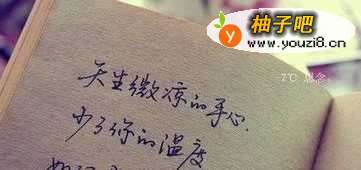 柚子吧
www.youzi8.cn
7℃ 思念
天生微凉的手心.
少了你的温度